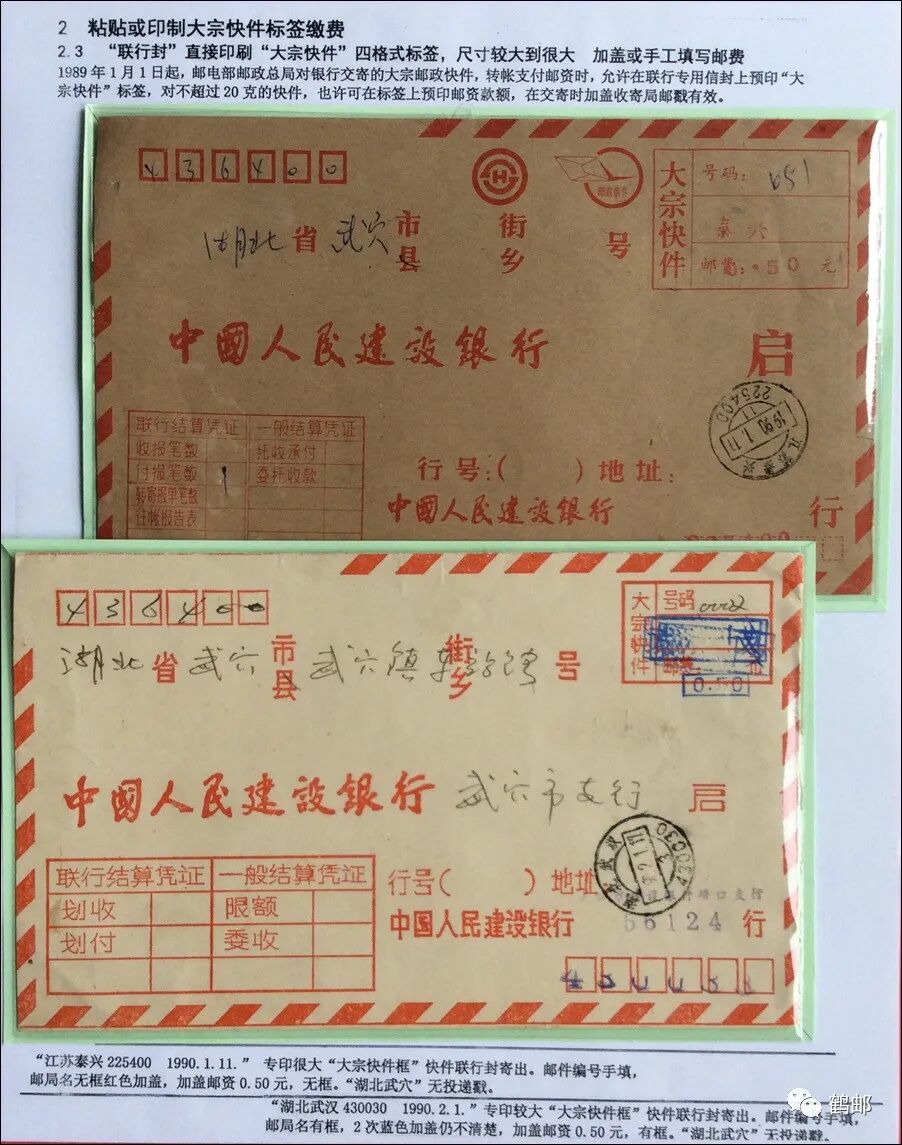 2 粘贴或印制大宗快件标签缴费
2.3 “联行封”直接印刷“大宗快件”四格式标签，尺寸较大到很大 加盖或手工填写邮费
1989年1月1日起，邮电部邮政总局对银行交寄的大宗邮政快件，转帐支付邮资时，允许在联行专用信封上预印“大
宗快件”标签，对不超过20克的快件，也许可在标签上预印邮资款额，在交寄时加盖收寄局邮戳有效。
436400
大宗快件
号码： 651
泰兴
邮费： 50 元
湖北 省 武穴 市县 街乡 号
中國人民建設銀行 启
225400
1990.1.11
江苏泰兴
联行结算凭证 一般结算凭证
收报笔数 托收承付
付报笔数 1 委托收款
转商报单笔数
往帐报告表
行号：( ) 地址：
中國人民建設銀行 行
436400
大宗快件
号码 0002
0.50
湖北 省 武穴 市县 武穴镇 街乡 号
中國人民建設銀行 武穴市支行 启
联行结算凭证 一般结算凭证
划收 限额
划付 委收
行号( ) 地址
中國人民建设银行 56124 行
“江苏泰兴225400 1990.1.11.” 专印很大“大宗快件框”快件联行封寄出。邮件编号手填，
邮局名无框红色加盖，加盖邮资0.50元，无框。“湖北武穴”无投递戳。
“湖北武汉430030 1990.2.1.”专印较大“大宗快件框”快件联行封寄出。邮件编号手填，
邮局名有框，2次蓝色加盖仍不清楚，加盖邮资0.50元，有框。“湖北武穴”无投递戳
鹤邮